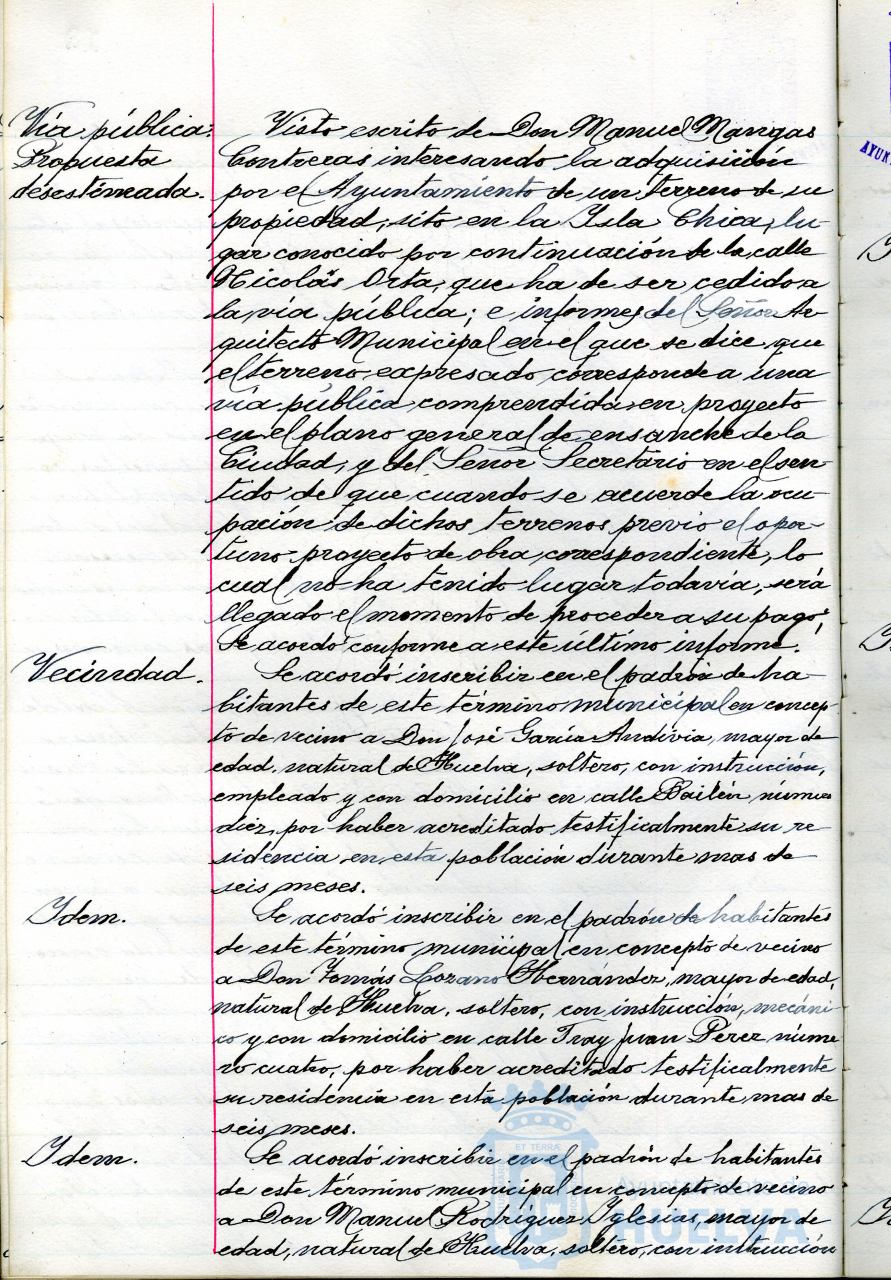 Vía pública:
Propuesta
desestimada.
Visto escrito de Don Manuel Mangas
Contreras interesando la adquisición
por el Ayuntamiento de un terreno de su
propiedad, sito en la Isla Chica, lu-
gar conocido por continuación de la calle
Nicolás Orta, que ha de ser cedido a
la vía pública; e informes del Señor Ar-
quitecto Municipal en el que se dice que
el terreno expresado corresponde a una
vía pública comprendida en proyecto
en el plano general de ensanche de la
Ciudad, y del Señor Secretario en el sen-
tido de que cuando se acuerde la ocu-
pación de dichos terrenos previo el opor-
tuno proyecto de obra correspondiente, lo
cual no ha tenido lugar todavía, será
llegado el momento de proceder a su pago,
Se acordó conforme a este último informe.
Vecindad.
Se acordó inscribir en el padrón de ha-
bitantes de este término municipal en concep-
to de vecino a Don José García Andivia, mayor de
edad, natural de Huelva, soltero, con instrucción,
empleado y con domicilio en calle Bailén número
diez, por haber acreditado testificalmente su re-
sidencia en esta población durante mas de
seis meses.
Idem.
Se acordó inscribir en el padrón de habitantes
de este término municipal en concepto de vecino
a Don Tomás Lozano Hernández, mayor de edad,
natural de Huelva, soltero, con instrucción, mecáni-
co y con domicilio en calle Fray Juan Pérez núme-
ro cuatro, por haber acreditado testificalmente
su residencia en esta población durante mas de
seis meses.
Idem.
Se acordó inscribir en el padrón de habitantes
de este término municipal en concepto de vecino
a Don Manuel Rodríguez Yglesias, mayor de
edad, natural de Huelva, soltero, con instrucción
Ayuntamiento de
HUELVA